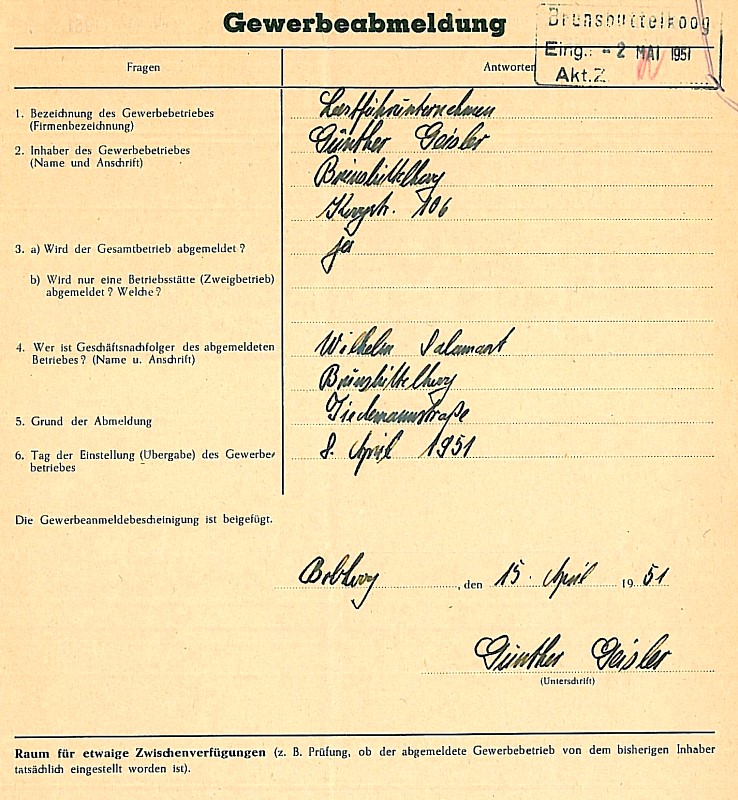 Gewerbeabmeldung
Brunsbüttelkoog
Eing.: - 2 MAI 1951
Akt.Z.
Fragen
Antworten
1. Bezeichnung des Gewerbebetriebes
(Firmenbezeichnung)
Lastfuhrunternehmen
2. Inhaber des Gewerbebetriebes
(Name und Anschrift)
Günther Geisler
Brunsbüttelkoog
Koogstr. 106
3. a) Wird der Gesamtbetrieb abgemeldet?
ja
b) Wird nur eine Betriebsstätte (Zweigbetrieb)
abgemeldet? Welche?
4. Wer ist Geschäftsnachfolger des abgemeldeten
Betriebes? (Name u. Anschrift)
Wilhelm
Brunsbüttelkoog
Tiedemannstraße
5. Grund der Abmeldung
6. Tag der Einstellung (Übergabe) des Gewerbe-
betriebes
8. April 1951
Die Gewerbeanmeldebescheinigung ist beigefügt.
Bbtkoog, den 15. April 1951
Günther Geisler
(Unterschrift)
Raum für etwaige Zwischenverfügungen (z. B. Prüfung, ob der abgemeldete Gewerbebetrieb von dem bisherigen Inhaber
tatsächlich eingestellt worden ist).